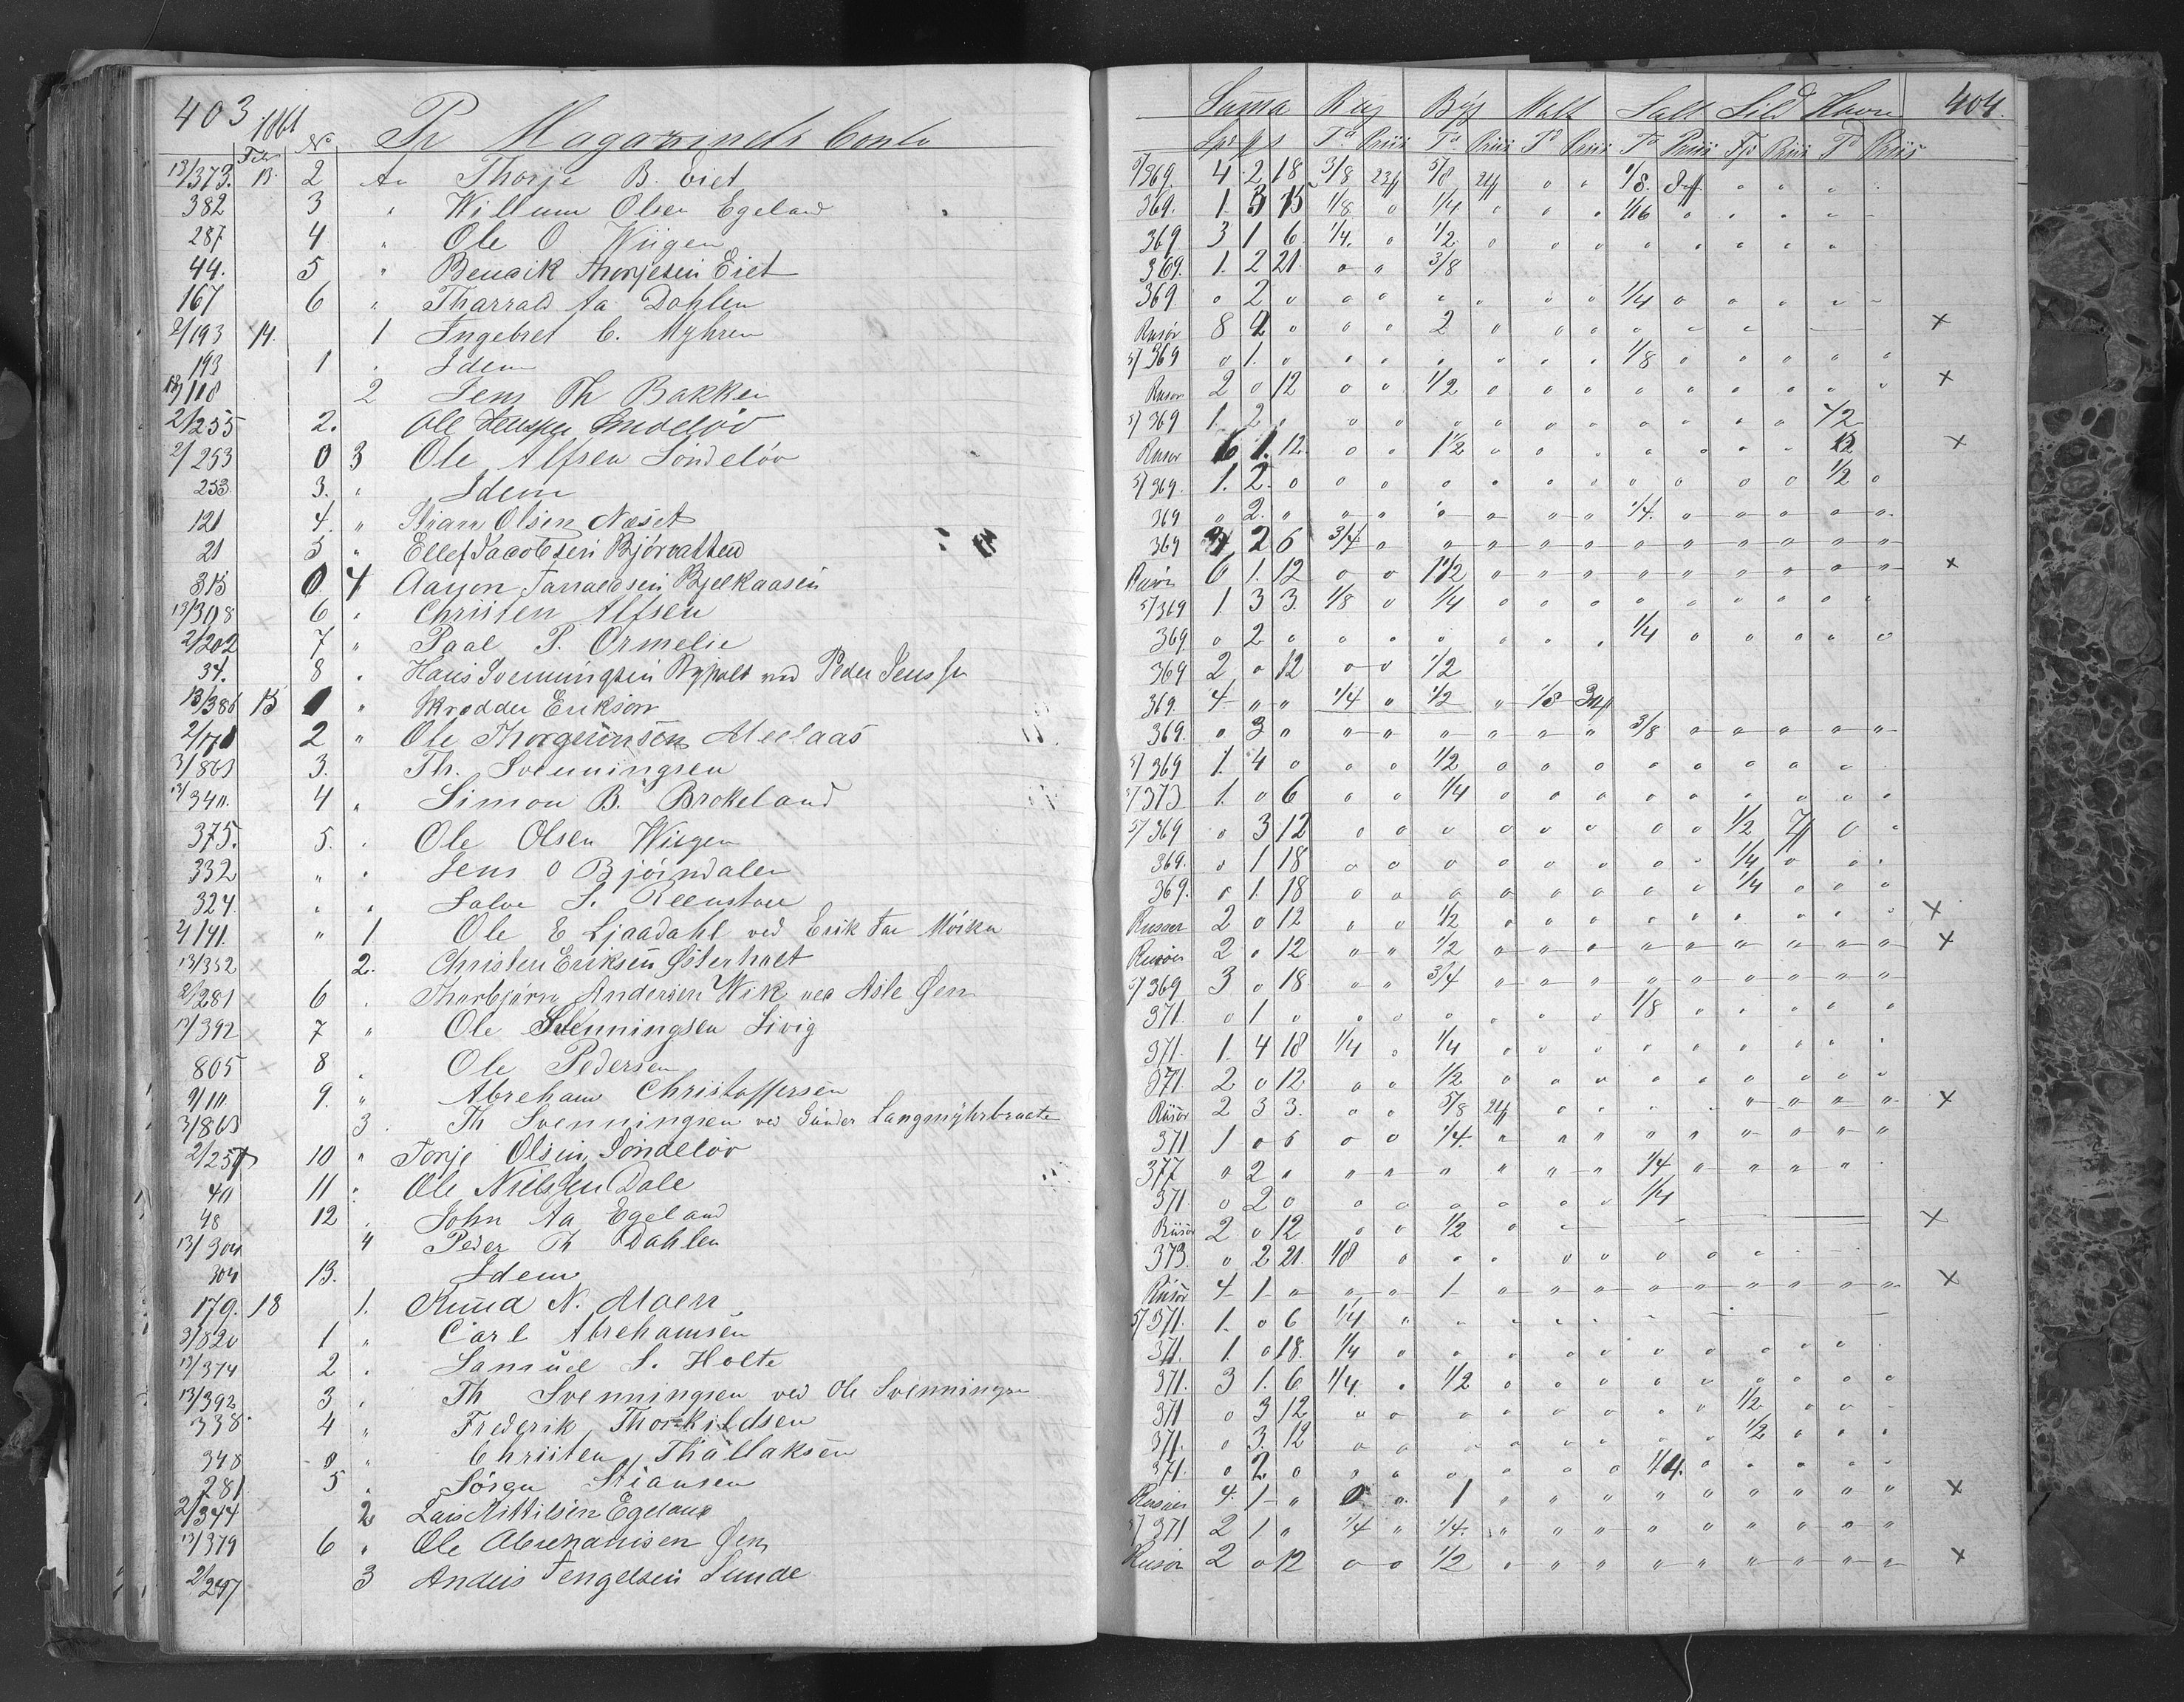 403 1861 No Pr Magazinets Conto
Febr
13/373. 13. 2 An Thorje B. Eiet
382 3 " Willum Olsen Egeland
287 4 " Ole O Wiigen
44. 5 " Bendik Thorjesen Eiet
167 6 " Tharrald Aa Dahlen
2/193 14. 1 Ingebret C. Myhren
193 1 " Idem
13/118 2 Jens Th Bakken
2/255 2. Ole Søndeløv
2/253 0 3 Ole Alfsen Søndeløv
253 3. " Idem
121 4. " Stian Olsen Næset
21 5 " Ellef Jacobsen Bjørvatten
315 0 4 Aanon Tarraldsen Bjelkaasen
13/398 6 " Christen Alfsen
2/202 7 " Paal P. Ormelie
34. 8 " Hans Svenningsen ved Peder Jens
13/386 15 1 " Skrædder Erikson
2/171 2 " Ole Thorgrimsen Meelaas
3/863 3. Th. Svenningsen
13/340. 4 " Simon B. Brokeland
375. 5. " Ole Olsen Wiigen
332 " " Jens O Bjørndalen
324. " " Salve S. Reenstøe
2/141. " 1 Ole E Ljaadahl ved Erik Mörken
13/352 2. Christen Eriksen Østerholt
2/281 6 " Thorbjørn Andersen Wik ved Asle Øen
13/392 7 " Ole Svenningsen Sivig
805 8 " Ole Pedersen
9/10. 9. " Abreham Christoffersen
3/863 3. Th Svenningsen ved Gunder Langmyhrbraate
2/257 10 " Torje Olsen Søndeløv
40 11 " Ole Nielssen Dale
48 12 " John Aa Egeland
13/304 4 Peder Th Dahlen
304 13. Idem
179. 18 1. Knud N. Moen
3/820 1 " Carl Abrehamsen
13/374 2 " Samuel S. Holte
13/392 3 " Th Svenningsen ved Ole Svenningsen
338 4 " Frederik Thorkildsen
348 " " Christen Thallaksen
281 5 " Jörgen Stiansen
2/344 2 Lars Kittilsen Egeland
13/379 6 " Ole Abrehamsen Øen
2/247 3 Anders Tengelsen Lunde
Suma Rug Byg Malt Salt Sild Havre 404.
Spd Td Priis Td Priis Td Priis Td Priis Td Priis Td Priis
5/369. 4 2 18 3/8 23 5/8 21 " " 1/8. 8 " " " "
369. 1 3 15 1/8 " 1/4 " " " 1/16 " " " " "
369 3 1 6 1/4. " 1/2 " " " " " " " " "
369. 1. 2 21 " " 3/8
369. " 2 " " " " " " " 1/4 " " " " "
Risør 8 2 " " " 2 " " " " " " " ×
5/369 " 1. " " " " " " " 1/8 " " " " "
Risør 2 " 12 " " 1/2 " " " " " " " " " ×
5/369 1. 2 " " " " " " " " " " " 1/2
Risør 6 1. 12. " " 1 1/2 " " " " " " " ×
5/369. 1. 2. " " " " " " " " " " " 1/2 "
369 " 2. " " " " " " " 1/4. " " " " "
369 2 6 3/4 " " " " " " " " " " "
Risør 6 1. 12 " " 1 1/2 " " " " " " " " " ×
5/369 1. 3 3. 1/8 " 1/4 " " " " " " " " "
369. " 2 " " " " " " " 1/4 " " " " "
369 2 " 12 " " 1/2
369. 4 " " 1/4 " 1/2 " 1/8
369. " 3 " " " " " " " 3/8 " " " " "
5/369 1. 4 " " " 1/2 " " " " " " " " "
5/373 1. " 6 " " 1/4 " " " " " " " " "
5/369 " 3 12 " " " " " " " " 1/2 7 " "
369. " 1 18 " " " " " " " " 1/4 " " "
369. " 1. 18 " " " " " " " " 1/4 " " "
Risøer 2 " 12 " " 1/2 " " " " " " " " " ×
Risøer 2 " 12 " " 1/2 " " " " " " " " " ×
5/369 3 " 18 " " 3/4 " " " " " " " " "
371. " 1 " " " " " " " 1/8 " " " " "
371. 1. 4 18 1/4 " 1/4 " " " " " " " " "
371 2 " 12 " " 1/2 " " " " " " " " "
Risør 2 3 3. " " 5/8 21 " " " " " " " " ×
371 1 " 6 " " 1/4. " " " " " " " " "
377 " 2 " " " " " " " 1/4 " " " " "
371 " 2 " " " " " " " 1/4
Risør 2 " 12 " " 1/2 " " ×
373. " 2 21. 1/8 " " " " " " " " " " "
Risør 4 1 " " " 1 " " " " " " " " " ×
5/371. 1. " 6 1/4 " " " " " "
371. 1. " 18. 1/4 " " " " " " " " " "
371. 3 1. 6 1/4. " 1/2 " " " " " " " " "
371 " 3 12 " " " " " " " " 1/2 " " "
371. " 3. 12 " " " " " " " " 1/2 " " "
371. " 2 " " " " " " " 1/4. " " " " "
Risøer 4. 1 " 0 " 1 " " " " " " " " " ×
5/371 2 1 " 1/4 " 1/4. " " " " " " " " "
Risør 2 " 12 " " 1/2 " " " " " " " " " ×